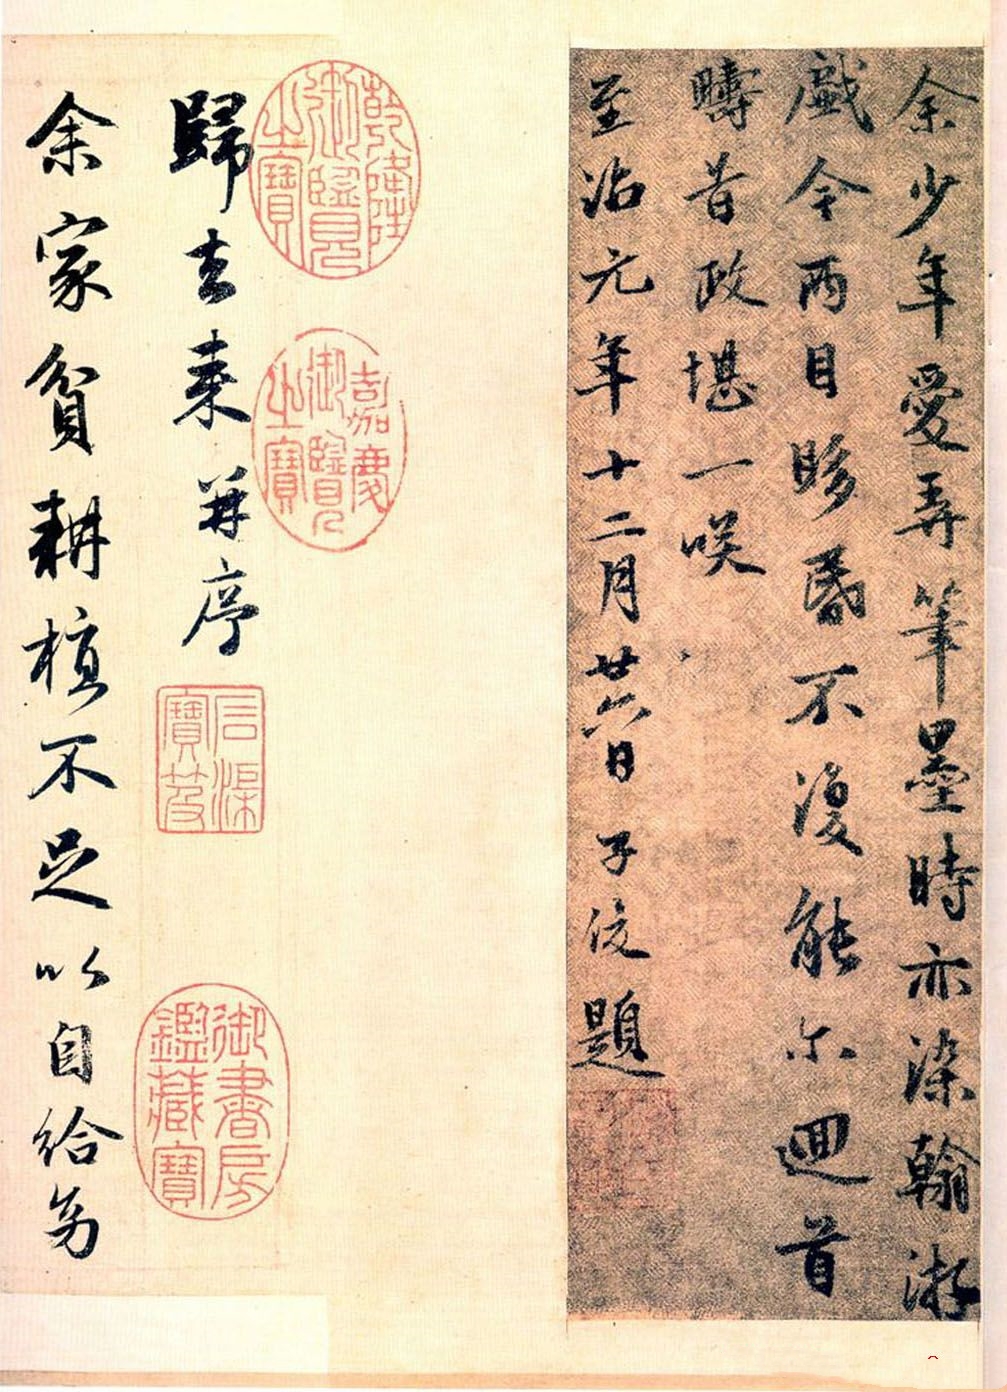 余少年愛弄筆墨時亦染翰游
戲今兩目眵昏不復能尒迴首
疇昔政堪一咲
至治元年十二月廿六日 子俊題
乾隆御覽之寶
嘉慶御覽之寶
歸去来并序
石渠寶笈
御書房鑑藏寶
余家貧耕植不足以自給幼